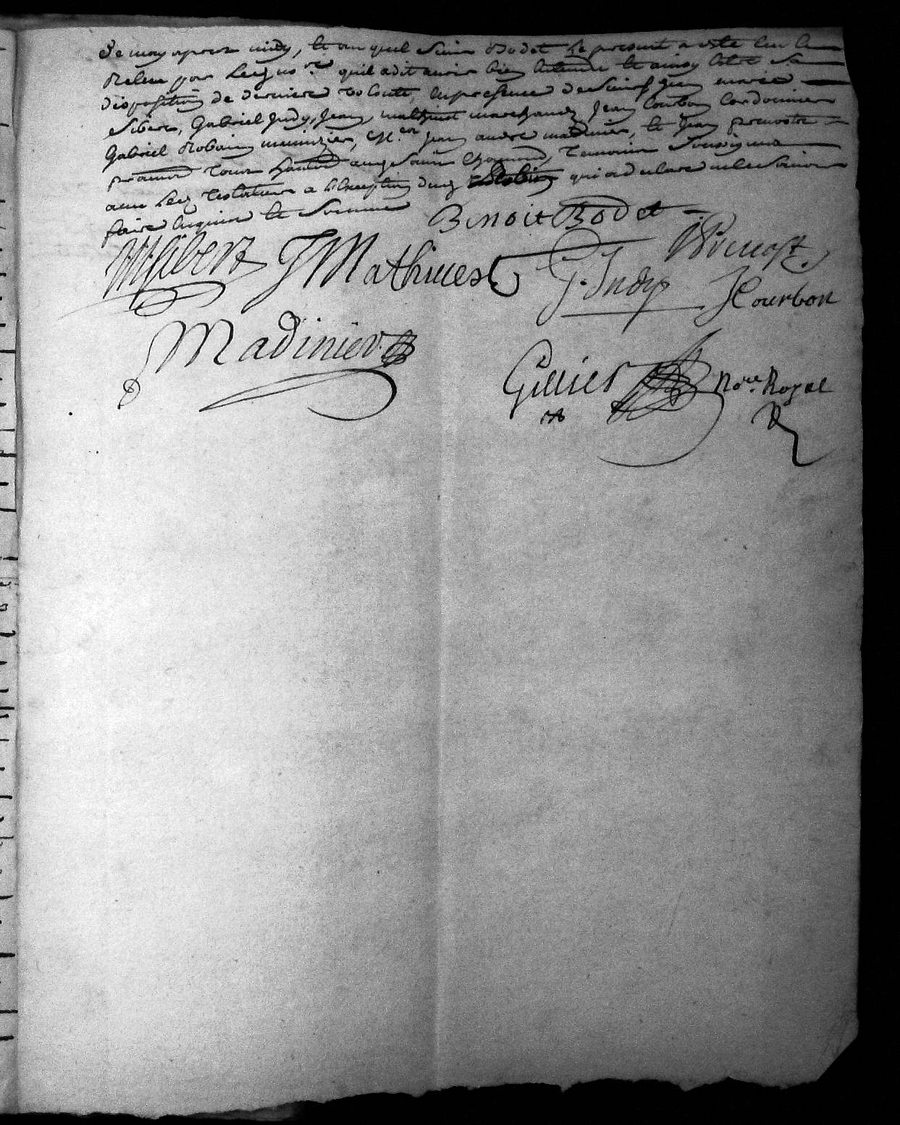 De may apres midy, et au quel Sieur Bodet le present a esté leu et
Releu par Led no.re qu'il a dit avoir bien Entendu et aussy estre Sa
disposition de derniere volonté En presence de Sieurs
Sibert, Gabriel Judy, Jean marchand, Jean Courbon Cordonnier
Gabriel Robin menuizier, M.e Jean andré madinier, et Jean prevost
tous au Chamond, temoins Soussignés
avec Led Testateur a l'Exception dud Robin qui a declaré ne le Scavoir
faire Enquis et Sommé
Benoit Bodet
Sibert J Mathieu G. Judy Prevost
JCourbon
Madinier
Gillier No.re Royal